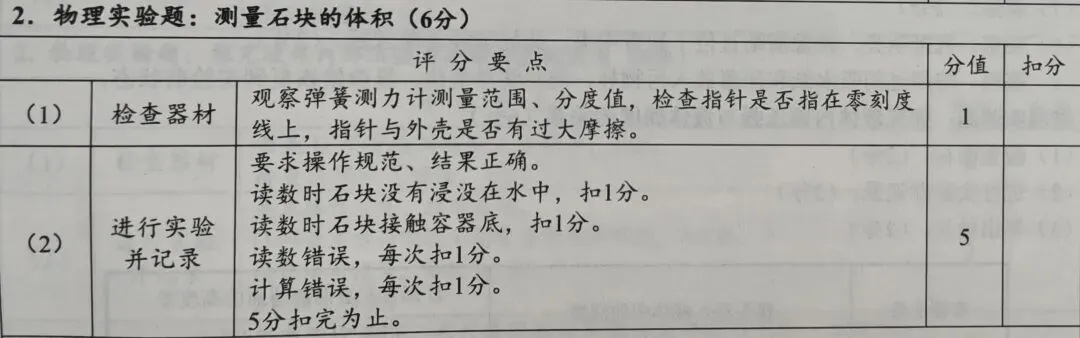 2. 物理实验题：测量石块的体积（6分）
评分要点 分值 扣分
（1） 检查器材 观察弹簧测力计测量范围、分度值，检查指针是否指在零刻度
线上，指针与外壳是否有过大摩擦。 1
（2） 进行实验
并记录 要求操作规范、结果正确。
读数时石块没有浸没在水中，扣1分。
读数时石块接触容器底，扣1分。
读数错误，每次扣1分。
计算错误，每次扣1分。
5分扣完为止。 5